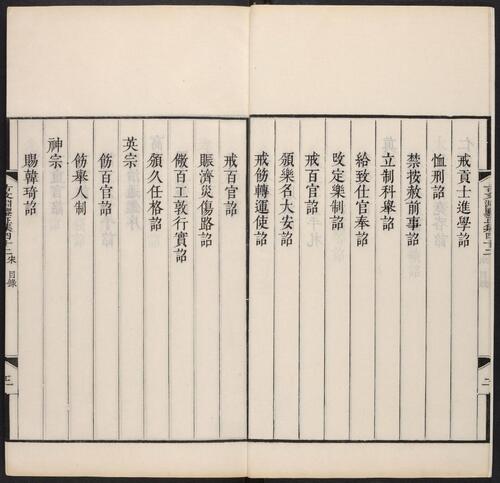 戒貢士進學詔
恤刑詔
禁按赦前事詔
立制科舉詔
給致仕官奉詔
改定樂制詔
戒百官詔
頒樂名大安詔
戒飭轉運使詔
戒百官詔
賑濟災傷路詔
儆百工敦行實詔
頒久任格詔
英宗
飭百官詔
飭舉人制
神宗
賜韓琦詔
目錄
二
目錄
三